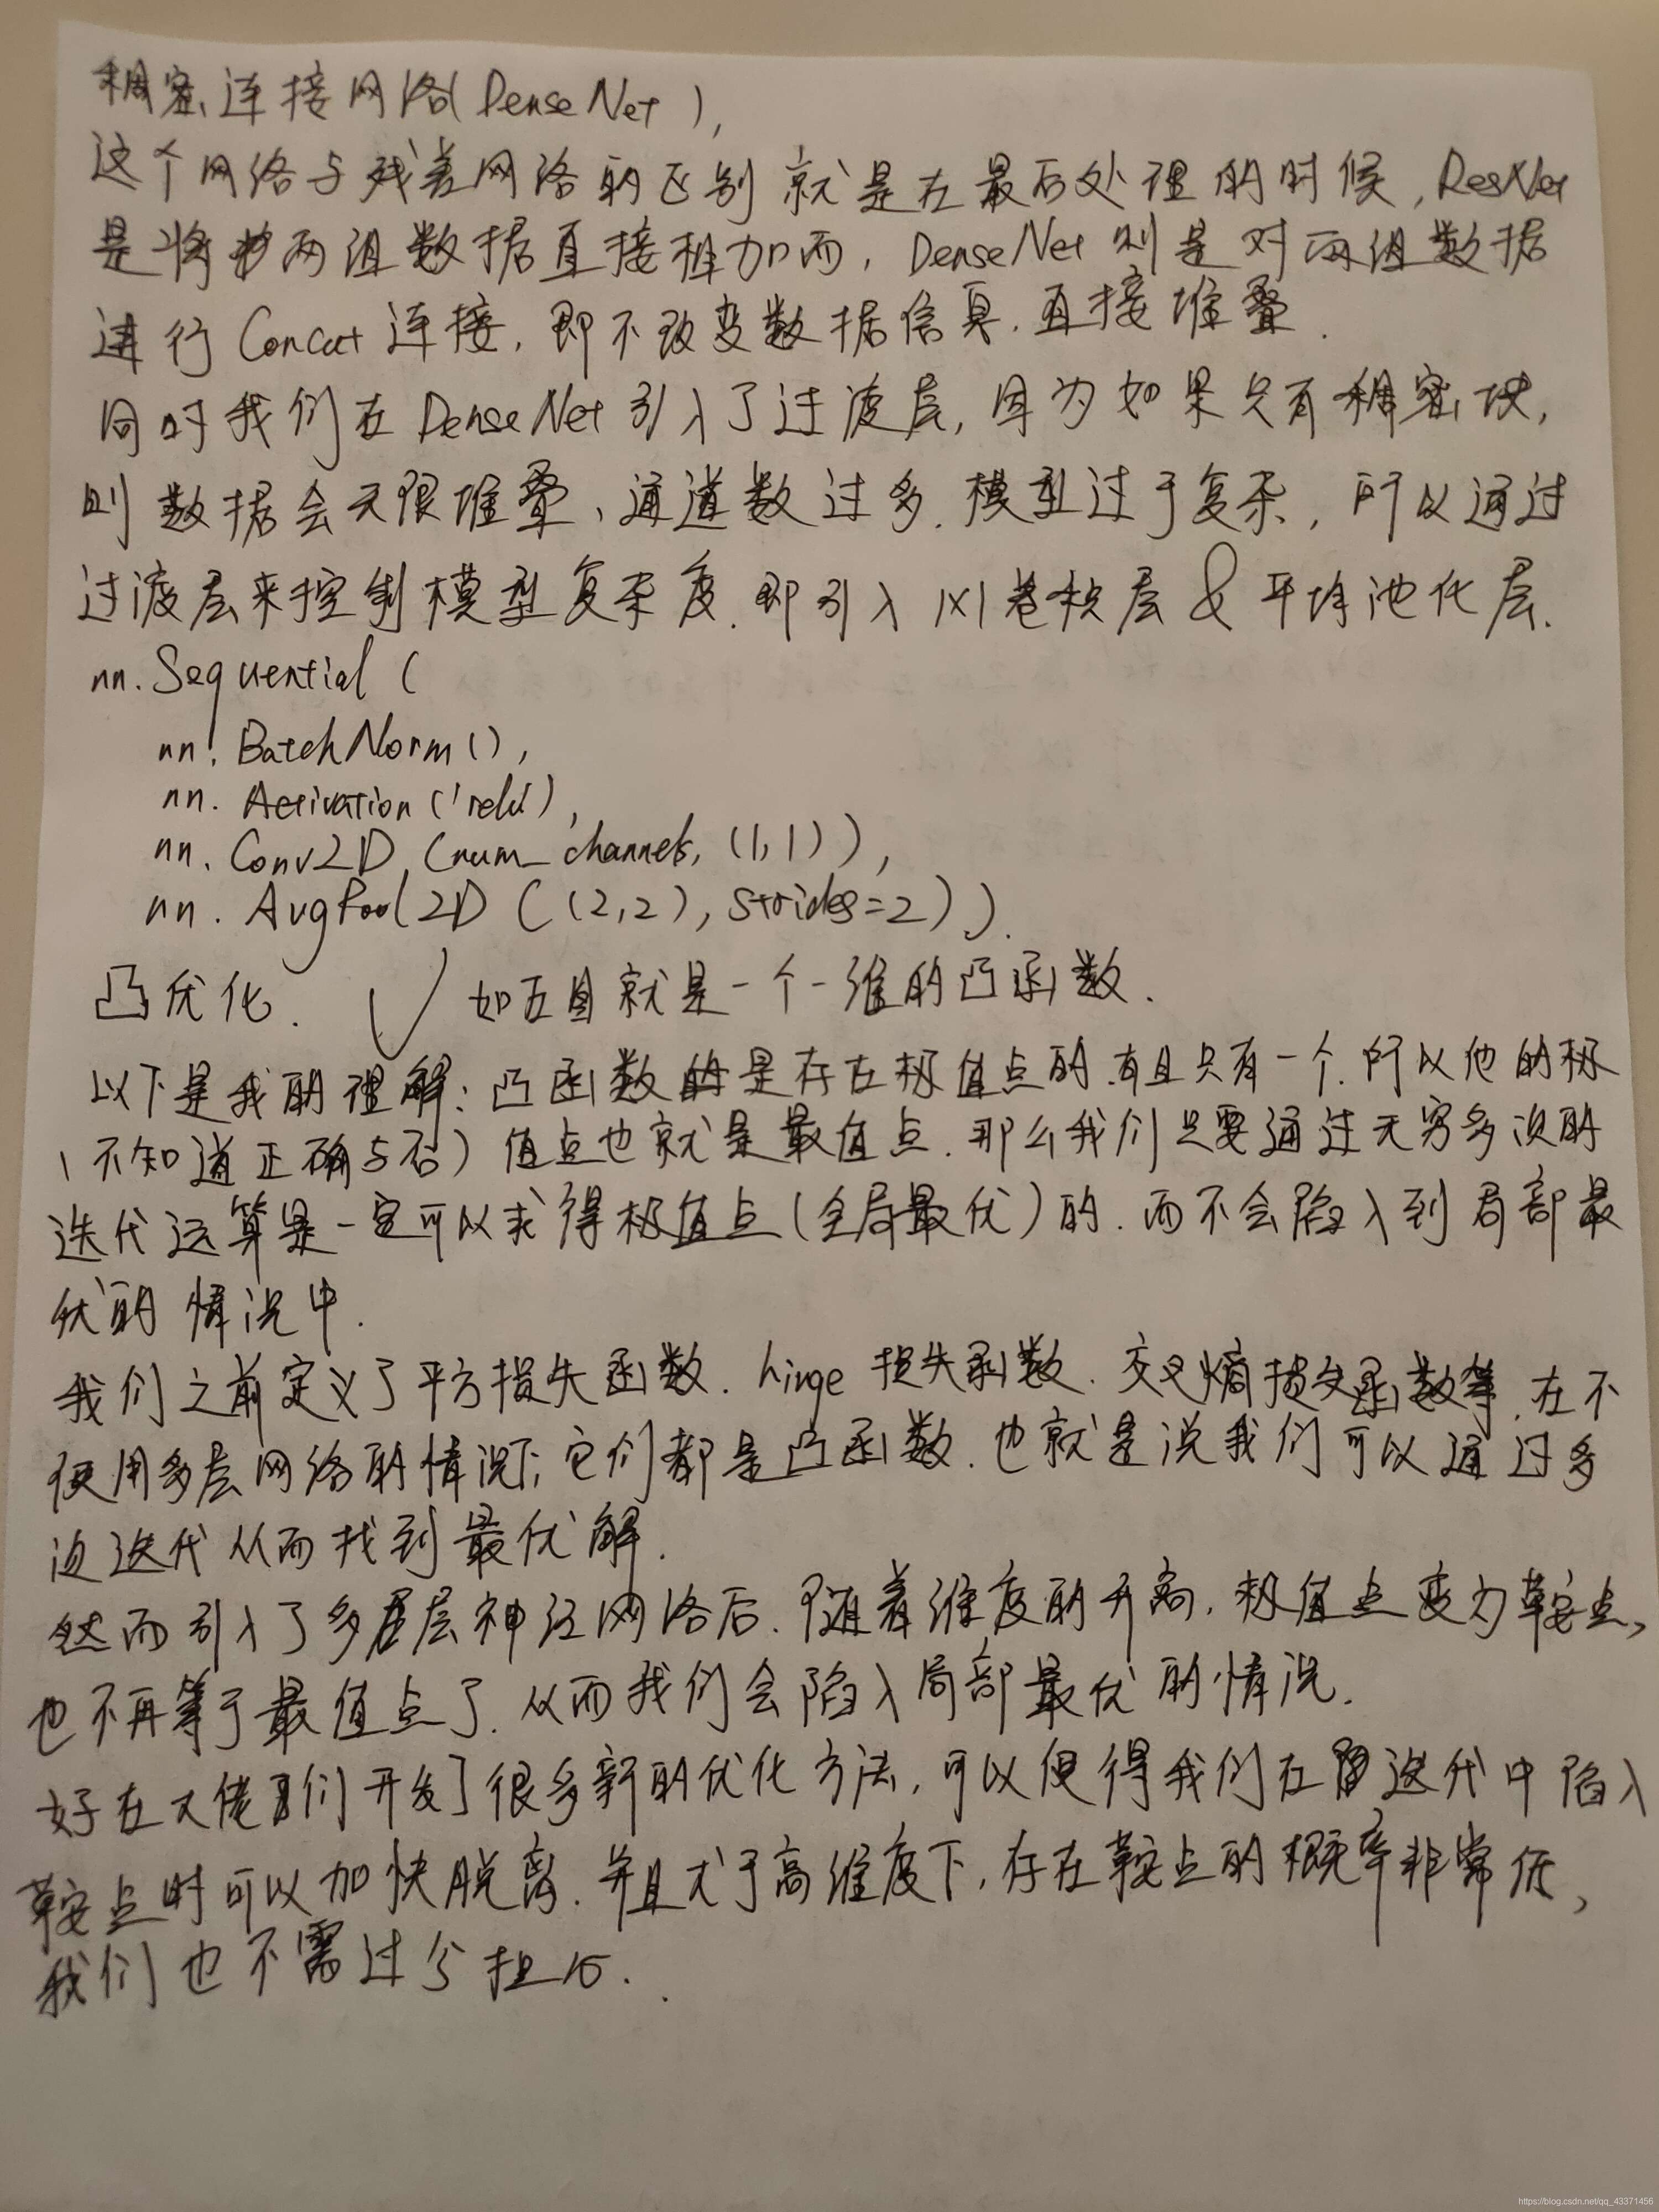 稠密连接网络(DenseNet),
这个网络与残差网络的区别就是在最后处理的时候,ResNet
是将两组数据直接相加而,DenseNet则是对两组数据
进行Concat连接,即不改变数据信息.直接堆叠.
同时我们在DenseNet引入了过渡层,因为如果只有稠密块,
则数据会无限堆叠、通道数过多.模型过于复杂,所以通过
过渡层来控制模型复杂度.即引入1×1卷积层&平均池化层.
nn.Sequential(
nn.BatchNorm(),
nn.Activation('relu'),
nn.Conv2D(num_channels,(1,1)),
nn.AvgPool2D((2,2),strides=2)).
凸优化. 如左图就是一个一维的凸函数.
以下是我的理解:凸函数的是存在极值点的.有且只有一个.所以他的极
(不知道正确与否)值点也就是最值点.那么我们只要通过无穷多次的
迭代运算是一定可以求得极值点(全局最优)的.而不会陷入到局部最
优的情况中.
我们之前定义了平方损失函数.hinge损失函数.交叉熵损失函数等.在不
使用多层网络的情况下,它们都是凸函数.也就是说我们可以通过多
迭代从而找到最优解.
然而引入了多层神经网络后.随着维度的升高,极值点变为鞍点,
也不再等于最值点了.从而我们会陷入局部最优的情况.
好在大佬们开发了很多新的优化方法,可以使得我们在迭代中陷入
鞍点时可以加快脱离.并且尤于高维度下,存在鞍点的概率非常低,
我们也不需过分担心.
https://blog.csdn.net/qq_43371456